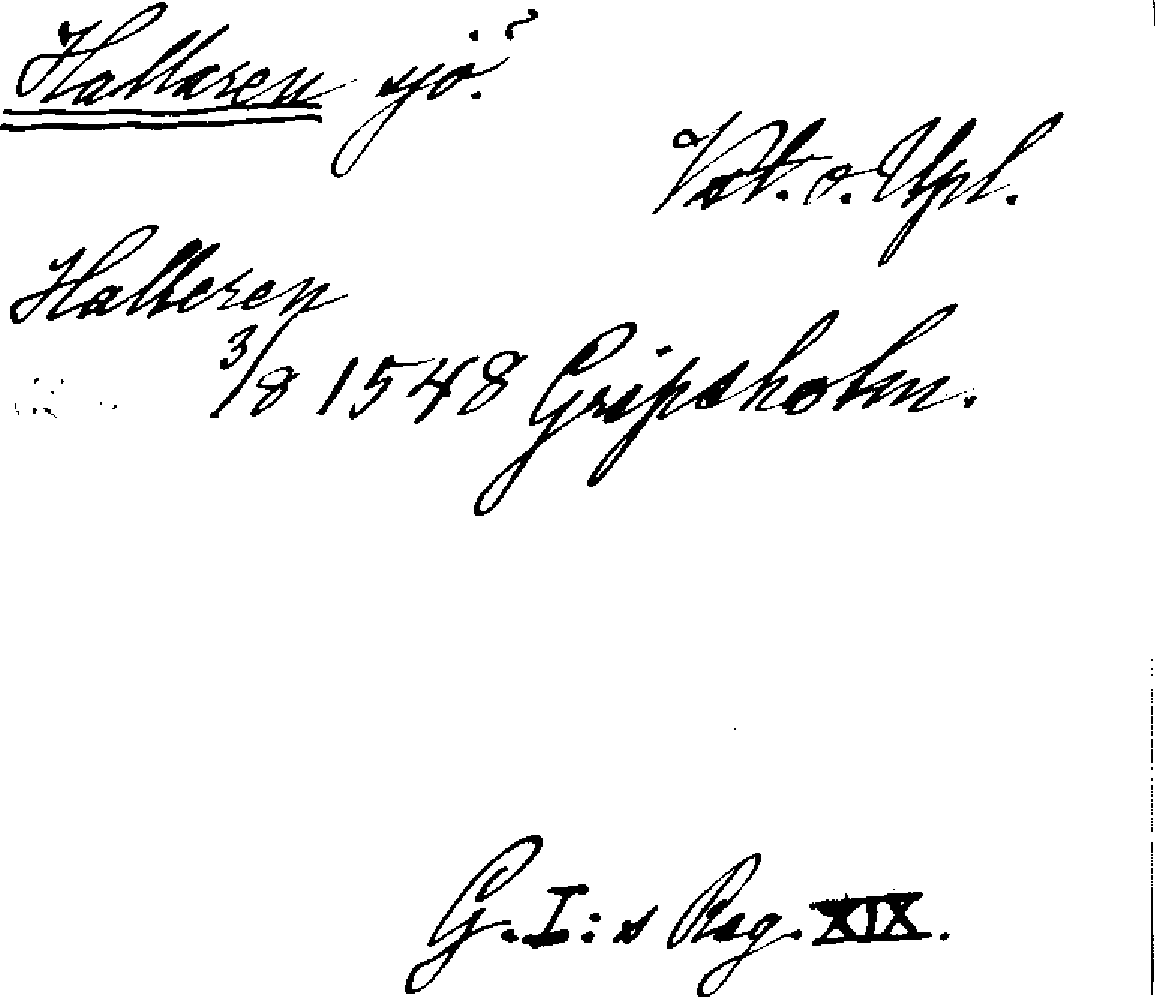 Hallaren sjö.
Vst. o. Upl.
Halleren
3/8 1548 Gripsholm.
G. I: s Reg. XIX.